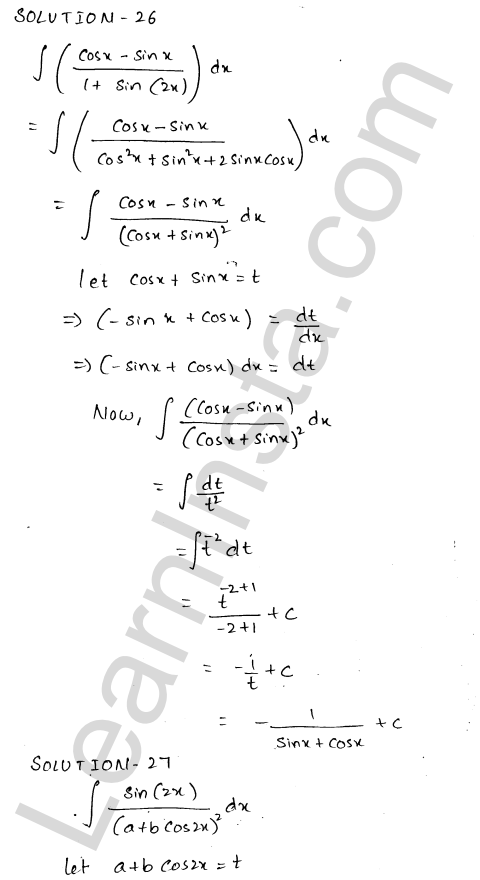 SOLUTION - 26
∫ ( (cosx - sinx) / (1 + sin(2x)) ) dx
= ∫ ( (cosx - sinx) / (cos²x + sin²x + 2 sinx cosx) ) dx
= ∫ (cosx - sinx) / (cosx + sinx)² dx
let cosx + sinx = t
⇒ (- sinx + cosx) = dt/dx
⇒ (- sinx + cosx) dx = dt
Now, ∫ ((cosx - sinx) / (cosx + sinx)² dx
= ∫ dt/t²
= ∫ t⁻² dt
= t^(-2+1) / (-2+1) + c
= - 1/t + c
= - 1 / (sinx + cosx) + c
SOLUTION - 27
∫ sin(2x) / (a+b cos2x)² dx
let a+b cos2x = t
LearnInsta.com